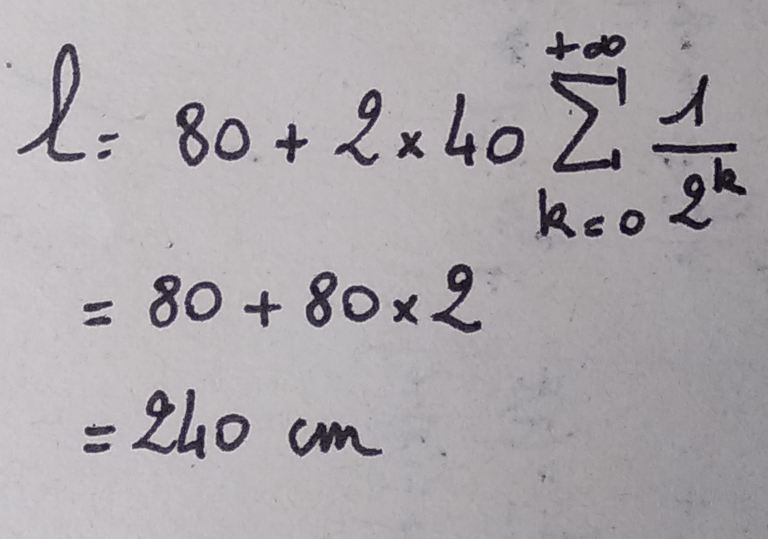 l = 80 + 2 × 40 ∑_{k=0}^{+∞} 1/2^k
= 80 + 80 × 2
= 240 cm